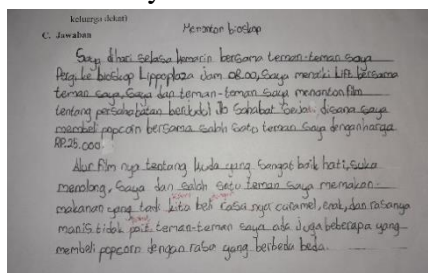 keluarga dekat)
C. Jawaban
Menonton bioskop
Saya dihari selasa kemarin bersama teman-teman saya
Pergi ke bioskop Lippoplaza Jam 08.00, Saya menaiki Lift bersama
teman saya, Saya dan teman-teman saya menonton film
tentang persahabatan berjudul Sahabat Sejati disana saya
membeli popcorn bersama salah satu teman saya dengan harga
RP.25.000
Alur film nya tentang kuda yang sangat baik hati, suka
menolong, Saya dan salah satu teman saya memakan
makanan yang tadi kita beli rasa nya caramel, enak, dan rasanya
manis tidak pait teman-teman saya ada juga beberapa yang
membeli popcorn dengan rasa yang berbeda beda.